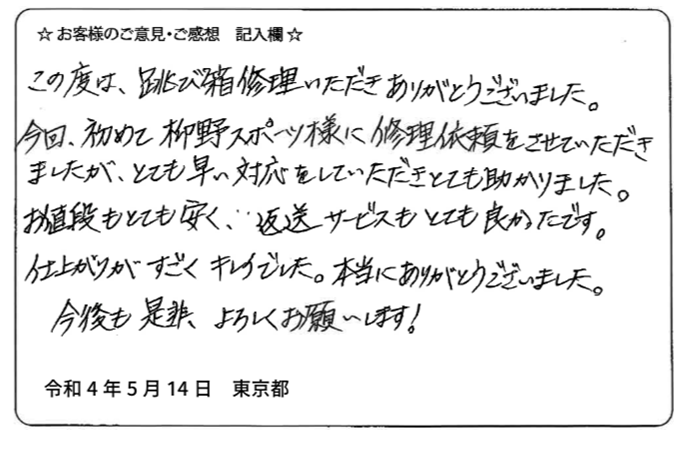 ☆お客様のご意見・ご感想　記入欄☆
この度は、跳び箱修理いただきありがとうございました。
今回、初めて柳野スポーツ様に修理依頼をさせていただき
ましたが、とても早い対応をしていただきとても助かりました。
お値段もとても安く、返送サービスもとても良かったです。
仕上がりがすごくキレイでした。本当にありがとうございました。
今後も是非、よろしくお願いします！
令和４年５月１４日　東京都